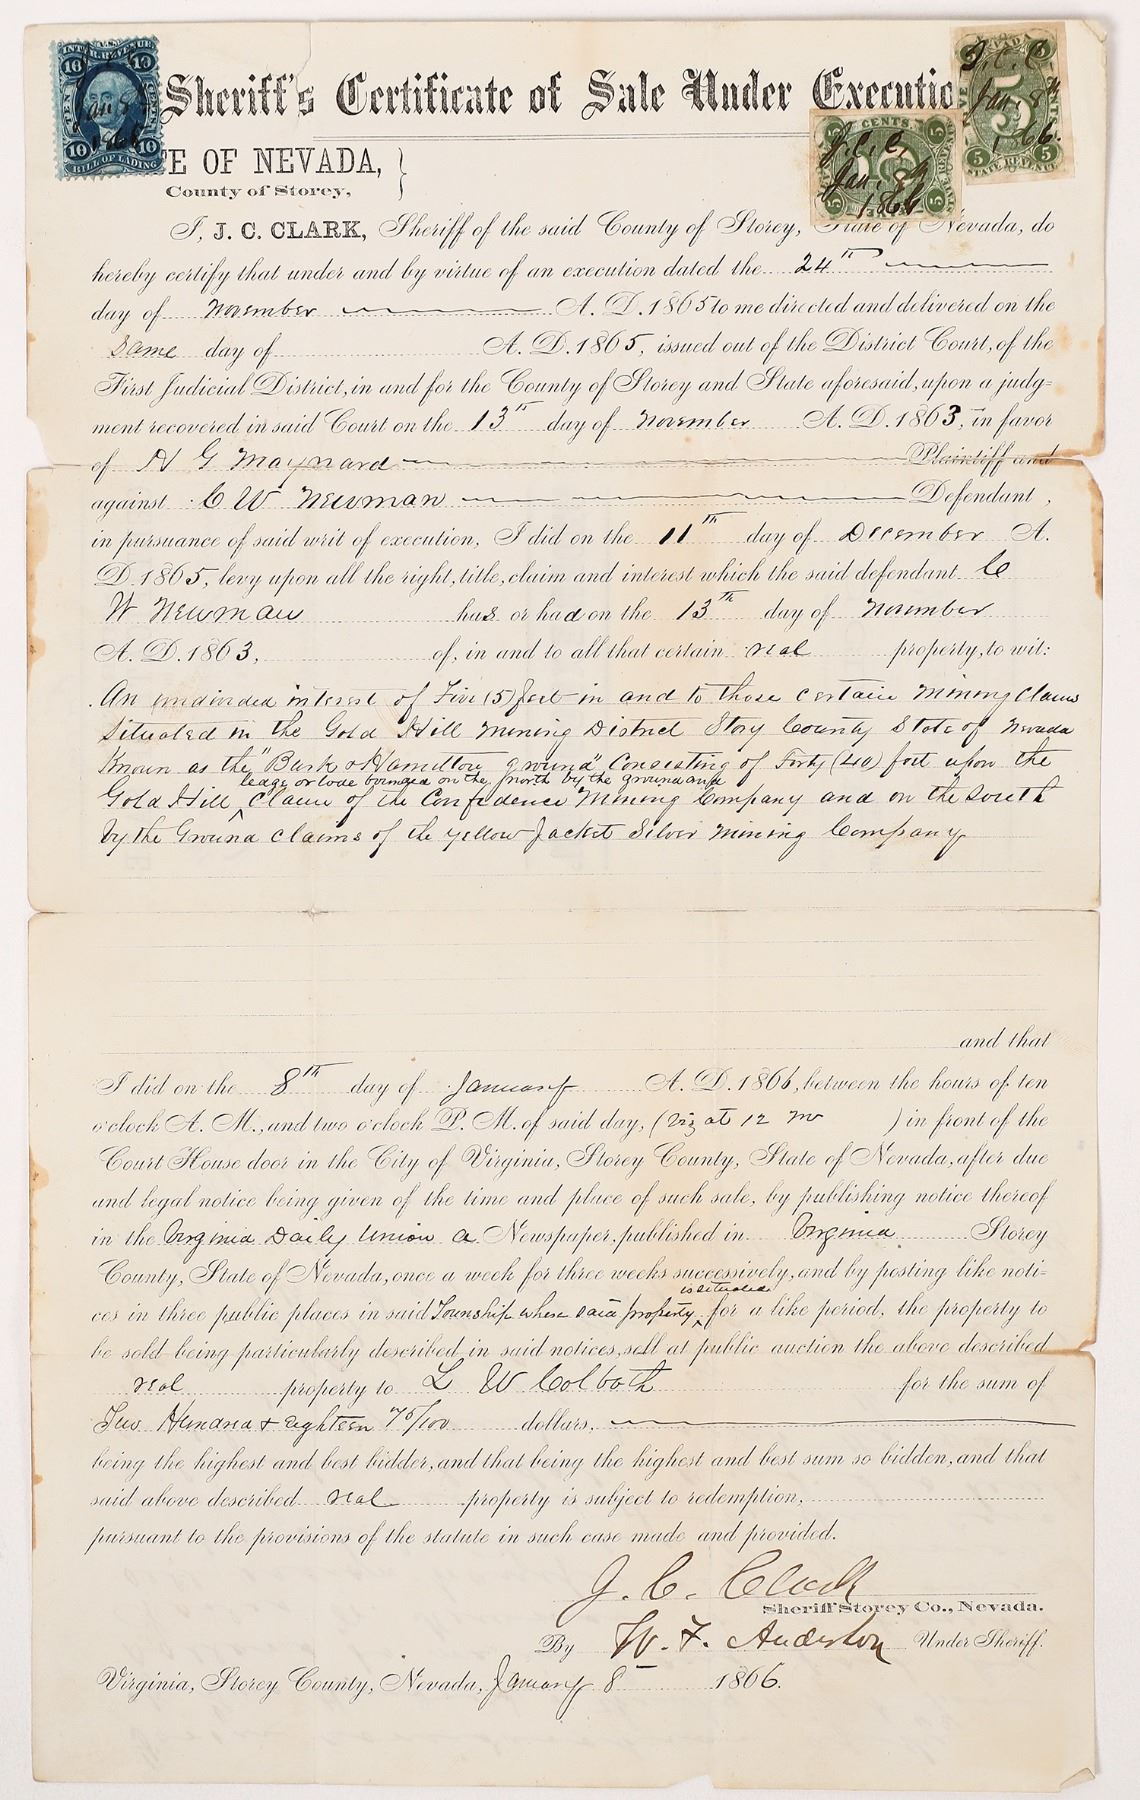 Sheriff's Certificate of Sale Under Executio
U.S. INTER. REVENUE
10 10
TEN CENTS
Jan 8th
1866
10 10
BILL OF LADING
NEVADA
5 5
J. C. C.
Jan. 8th
1866.
5 5
STATE REVENUE
CENTS
5 5
J. C. C.
Jan. 8th
1866
5 5
E OF NEVADA,
County of Storey,
I, J. C. CLARK, Sheriff of the said County of Storey, State of Nevada, do
hereby certify that under and by virtue of an execution dated the 24th
day of November A. D. 1865 to me directed and delivered on the
Same day of A. D. 1865, issued out of the District Court, of the
First Judicial District, in and for the County of Storey and State aforesaid, upon a judg-
ment recovered in said Court on the 13th day of November A. D. 1863, in favor
of H G Maynard Plaintiff and
against C W Newman Defendant,
in pursuance of said writ of execution, I did on the 11th day of December A.
D. 1865, levy upon all the right, title, claim and interest which the said defendant C
W Newman has or had on the 13th day of November
A. D. 1863, of, in and to all that certain real property, to wit:
An undivided interest of Five (5) feet in and to those certain Mining Claims
Situated in the Gold Hill Mining District Story County State of Nevada
Known as the "Burk & Hamilton ground" Consisting of Forty (40) feet upon the
ledge or lode bounded on the north by the ground and
Gold Hill ^ Claim of the Confidence Mining Company and on the South
by the Ground Claims of the Yellow Jacket Silver Mining Company
and that
I did on the 8th day of January A. D. 1866, between the hours of ten
o'clock A. M., and two o'clock P. M. of said day, (viz at 12 M ) in front of the
Court House door in the City of Virginia, Storey County, State of Nevada, after due
and legal notice being given of the time and place of such sale, by publishing notice thereof
in the Virginia Daily Union a Newspaper, published in Virginia Storey
County, State of Nevada, once a week for three weeks successively, and by posting like noti-
is situated
ces in three public places in said Township where said property ^ for a like period, the property to
be sold being particularly described in said notices, sell at public auction the above described
real property to L W Colbath for the sum of
Two Hundred & eighteen 75/100 dollars,
being the highest and best bidder, and that being the highest and best sum so bidden, and that
said above described real property is subject to redemption,
pursuant to the provisions of the statute in such case made and provided.
J. C. Clark
Sheriff Storey Co., Nevada.
By W. F. Anderson Under Sheriff.
Virginia, Storey County, Nevada, January 8 1866.